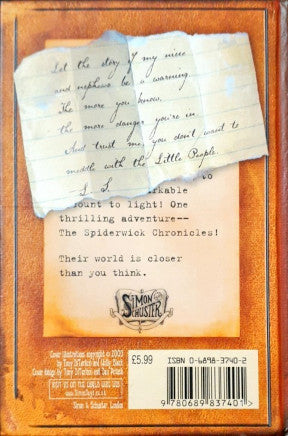 Let the story of my niece
and nephews be a warning.
The more you know,
the more danger you're in.
And trust me, you don't want to
meddle with the Little People.
L. S.
rkable
to
ount to light! One
thrilling adventure--
The Spiderwick Chronicles!
Their world is closer
than you think.
SIMON
SCHUSTER
Cover illustrations copyright © 2003
by Tony DiTerlizzi and Holly Black
Cover design by Tony DiTerlizzi and Dan Potash
VISIT US ON THE WORLD WIDE WEB
Simon & Schuster London
£5.99
ISBN 0-6898-3740-2
9 780689 837401 >